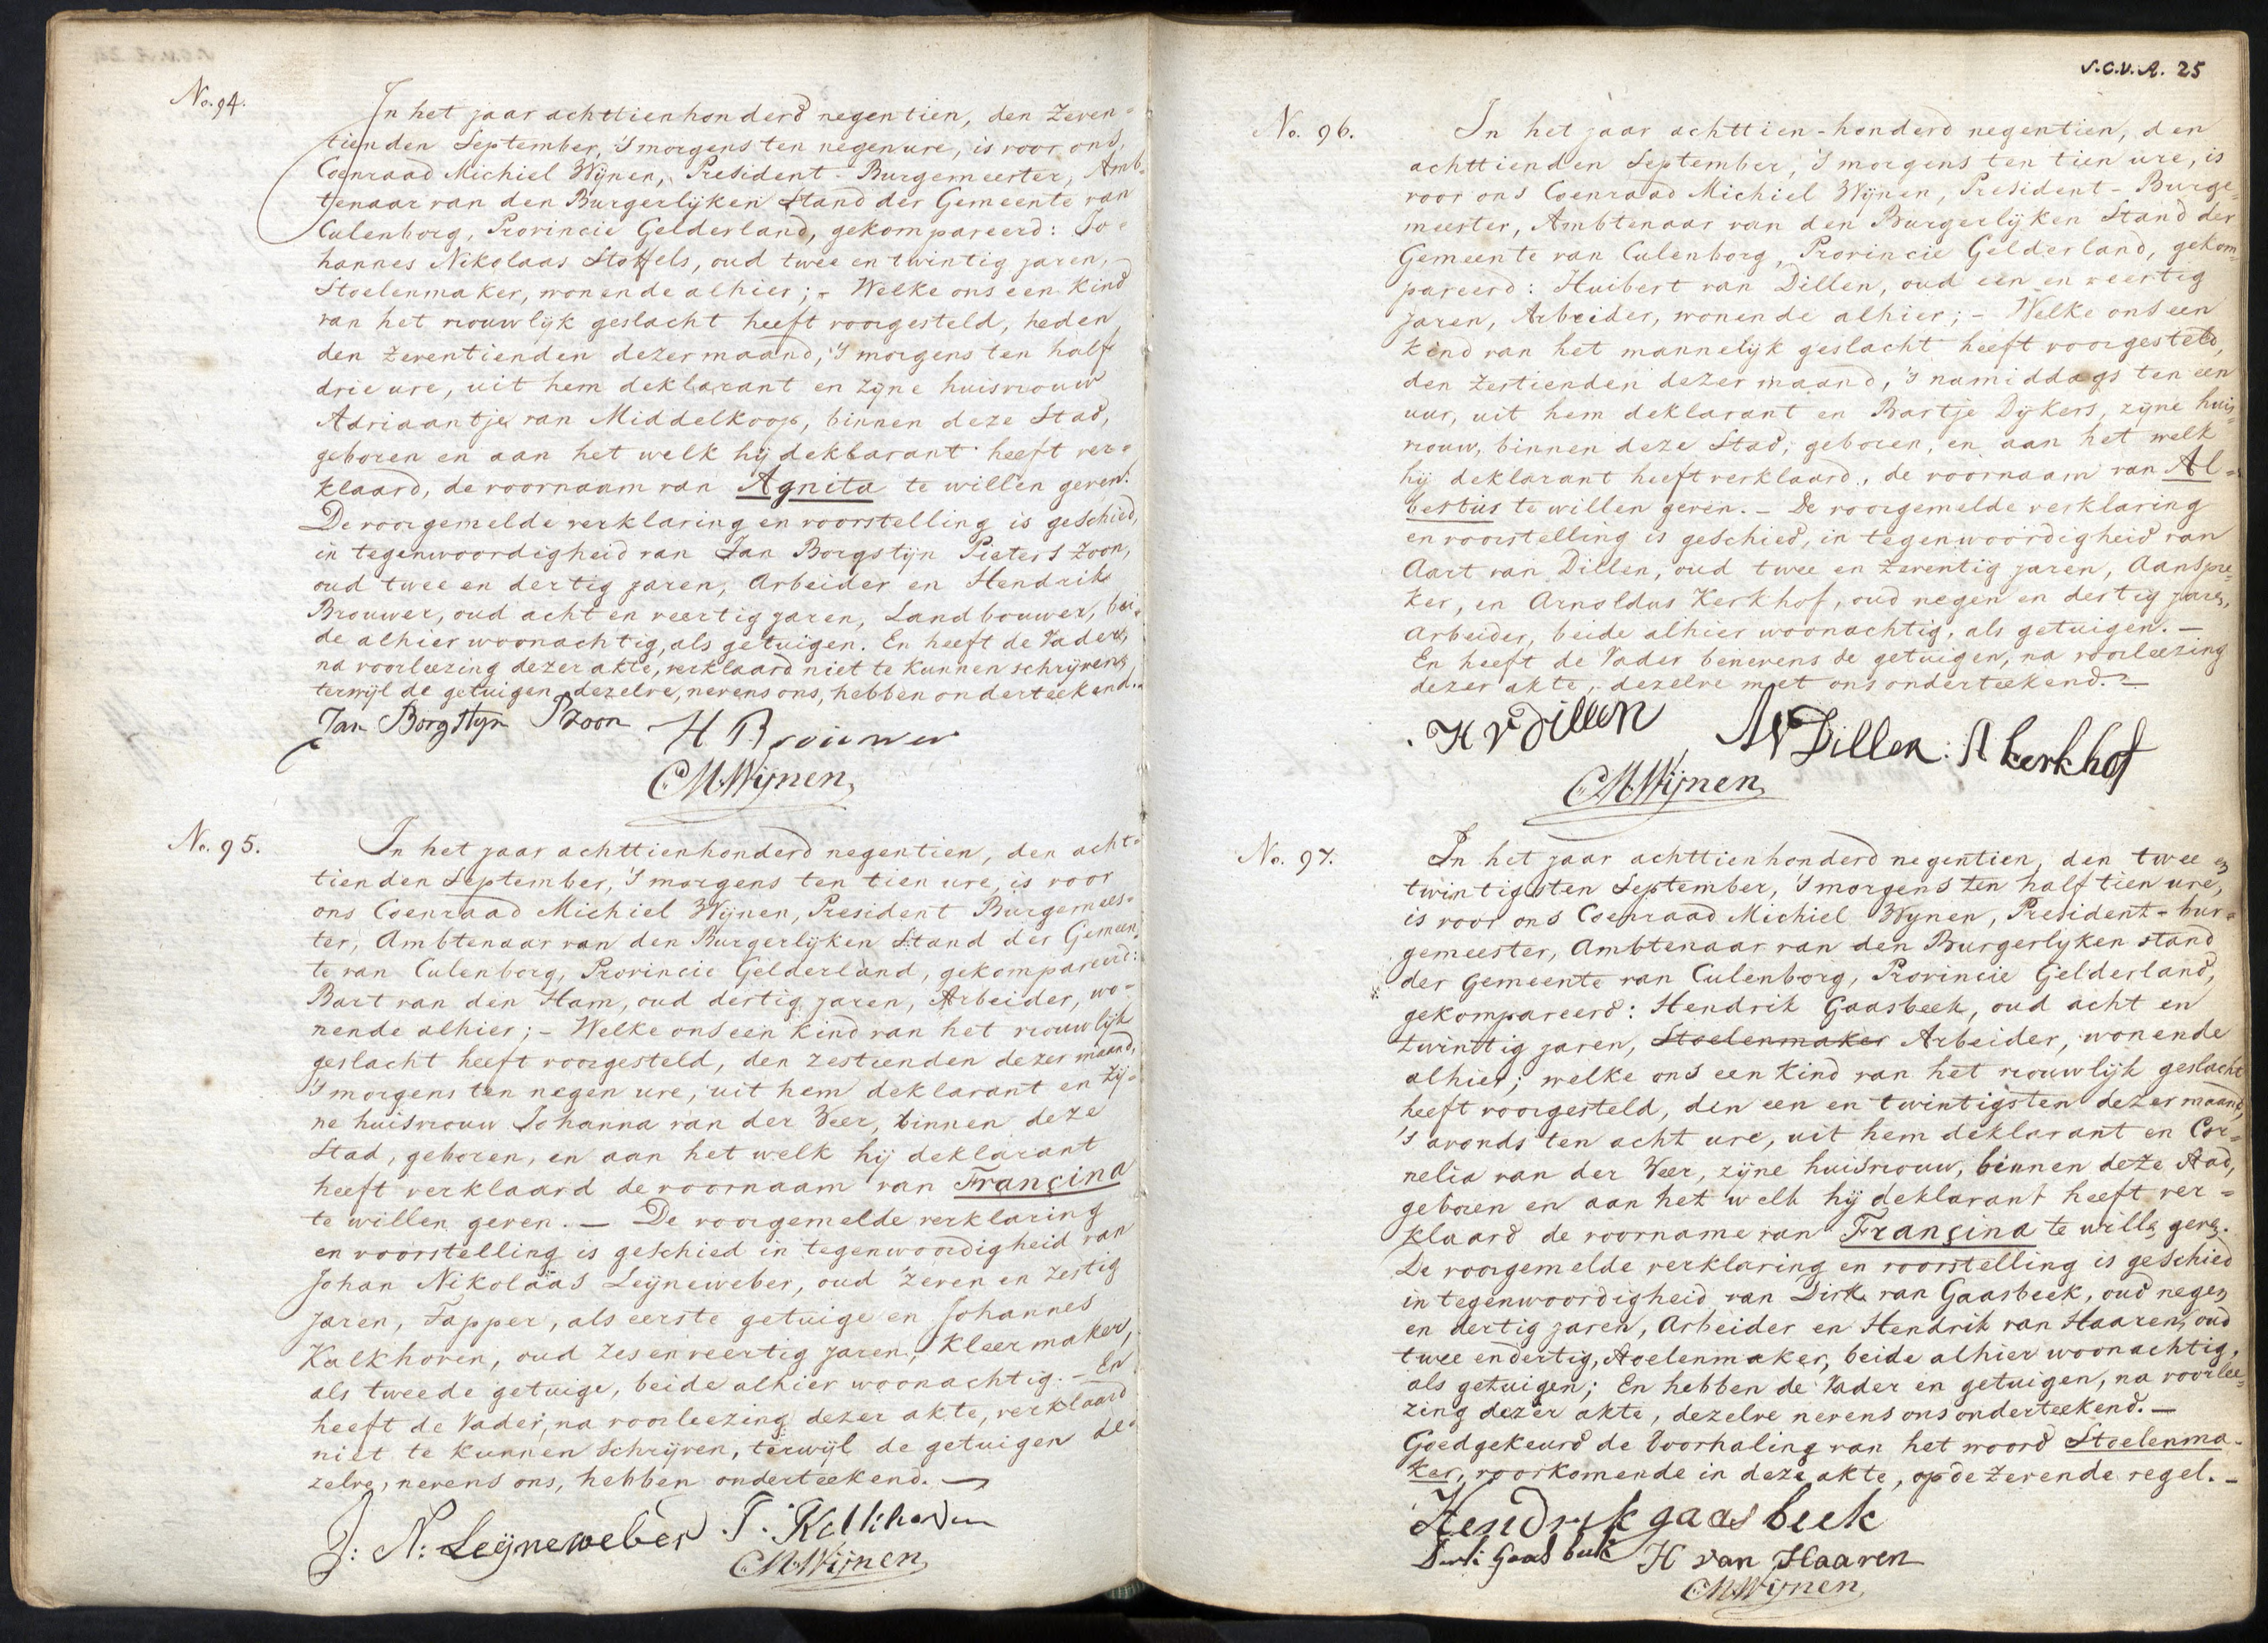 No. 94.
In het jaar achttienhonderd negentien, den Zeven=
tienden September, 's morgens ten negen ure, is voor ons,
Coenraad Michiel Wijnen, President-Burgemeester, Amb=
tenaar van den Burgerlijken Stand der Gemeente van
Culenborg, Provincie Gelderland, gekompareerd: Jo=
hannes Nikolaas Stoffels, oud twee en twintig jaren,
Stoelenmaker, wonende alhier; - Welke ons een Kind
van het vrouwlijk geslacht heeft voorgesteld, heden
den zeventienden dezer maand, 's morgens ten half
drie ure, uit hem deklarant en zijne huisvrouw
Adriaantje van Middelkoop, binnen deze Stad,
geboren en aan het welk hij deklarant heeft ver=
klaard, de voornaam van Agnita te willen geven.
De voorgemelde verklaring en voorstelling is geschied,
in tegenwoordigheid van Jan Borgstijn Pieters Zoon,
oud twee en dertig jaren, Arbeider en Hendrik
Brouwer, oud acht en veertig jaren, Landbouwer, bei=
de alhier woonachtig, als getuigen. En heeft de Vader,
na voorleezing dezer akte, verklaard niet te kunnen schrijven,
terwijl de getuigen dezelve, nevens ons, hebben onderteekend.
Jan Borgstijn Pzoon H Brouwer
CM Wijnen
No. 95.
In het jaar achttienhonderd negentien, den acht=
tienden September, 's morgens ten tien ure, is voor
ons Coenraad Michiel Wijnen, President Burgemees=
ter, Ambtenaar van den Burgerlijken Stand der Gemeen=
te van Culenborg, Provincie Gelderland, gekompareerd:
Bart van den Ham, oud dertig jaren, Arbeider, wo=
nende alhier; - Welke ons een kind van het vrouwlijk
geslacht heeft voorgesteld, den zestienden dezer maand,
's morgens ten negen ure, uit hem deklarant en zij=
ne huisvrouw Johanna van der Veer, binnen deze
Stad, geboren, en aan het welk hij deklarant
heeft verklaard de voornaam van Françina
te willen geven. — De voorgemelde verklaring
en voorstelling is geschied in tegenwoordigheid van
Johan Nikolaas Leijneweber, oud zeven en zestig
jaren, Tapper, als eerste getuige en Johannes
Kalkhoven, oud zes en veertig jaren, Kleermaker,
als tweede getuige, beide alhier woonachtig. - En
heeft de Vader, na voorleezing dezer akte, verklaard
niet te kunnen schrijven, terwijl de getuigen de=
zelve, nevens ons, hebben onderteekend. —
J: N: Leijneweber J. Kalkhoven
CM Wijnen
S.C.V.A. 25
No. 96.
In het jaar achttien-honderd negentien, den
achttienden September, 's morgens ten tien ure, is
voor ons Coenraad Michiel Wijnen, President-Burge=
meester, Ambtenaar van den Burgerlijken Stand der
Gemeente van Culenborg, Provincie Gelderland, gekom=
pareerd: Huibert van Dillen, oud een en veertig
Jaren, Arbeider, wonende alhier; - Welke ons een
kind van het mannelijk geslacht heeft voorgesteld,
den zestienden dezer maand, 's namiddags ten een
uur, uit hem deklarant en Bartje Dijkers, zijne huis=
vrouw, binnen deze Stad, geboren, en aan het welk
hij deklarant heeft verklaard, de voornaam van Al=
bertus te willen geven. - De voorgemelde verklaring
en voorstelling is geschied, in tegenwoordigheid van
Aart van Dillen, oud twee en zeventig jaren, Aanspre=
ker, en Arnoldus Kerkhof, oud negen en dertig jaren,
Arbeider, beide alhier woonachtig, als getuigen. —
En heeft de Vader benevens de getuigen, na voorleezing
dezer akte, dezelve met ons onderteekend. —
H v Dillen A v Dillen: A kerkhof
CM Wijnen
No. 97.
In het jaar achttienhonderd negentien, den twee en
twintigsten September, 's morgens ten half tien ure,
is voor ons Coenraad Michiel Wijnen, President-bur=
gemeester, Ambtenaar van den Burgerlijken stand
der Gemeente van Culenborg, Provincie Gelderland,
gekompareerd: Hendrik Gaasbeek, oud acht en
twintig jaren, Stoelenmaker Arbeider, wonende
alhier; welke ons een kind van het vrouwlijk geslacht
heeft voorgesteld, den een en twintigsten dezer maand,
's avonds ten acht ure, uit hem deklarant en Cor=
nelia van der Veer, zijne huisvrouw, binnen deze stad,
geboren en aan het welk hij deklarant heeft ver=
klaard de voorname van Françina te willen geven.
De voorgemelde verklaring en voorstelling is geschied
in tegenwoordigheid van Dirk van Gaasbeek, oud negen
en dertig jaren, Arbeider en Hendrik van Haaren, oud
twee en dertig, stoelenmaker, beide alhier woonachtig,
als getuigen; En hebben de Vader en getuigen, na voorlee=
zing dezer akte, dezelve nevens ons onderteekend. —
Goedgekeurd de doorhaling van het woord Stoelenma-
ker, voorkomende in deze akte, op de zevende regel. -
Hendrik gaasbeek
Dirk Gaasbeek H van Haaren
CM Wijnen